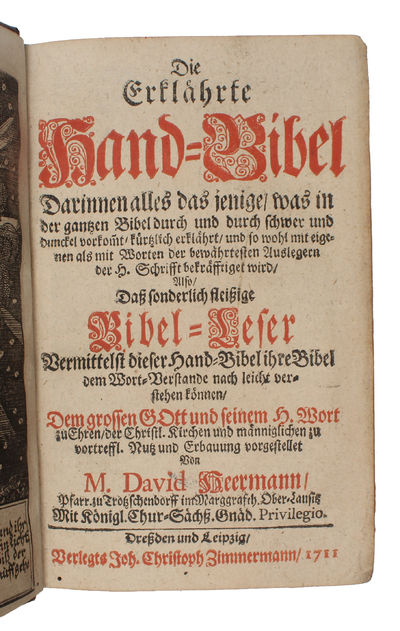 Die
Erklährte
Hand=Bibel
Darinnen alles das jenige/ was in
der gantzen Bibel durch und durch schwer und
dunckel vorkom̃t/ kürtzlich erklährt/ und so wohl mit eige-
nen als mit Worten der bewährtesten Auslegern
der H. Schrifft bekräfftiget wird/
Also/
Daß sonderlich fleißige
Bibel=Leser
Vermittelst dieser Hand=Bibel ihre Bibel
dem Wort=Verstande nach leicht ver-
stehen können/
Dem grossen GOtt und seinem H. Wort
zu Ehren/ der Christl. Kirchen und männiglichen zu
vortreffl. Nutz und Erbauung vorgestellet
Von
M. David Heermann/
Pfarr. zu Trotzschendorff im Marggrafth. Ober=Lausitz
Mit Königl. Chur=Sächß. Gnäd. Privilegio.
Dreßden und Leipzig/
Verlegts Joh. Christoph Zimmermann/ 1711